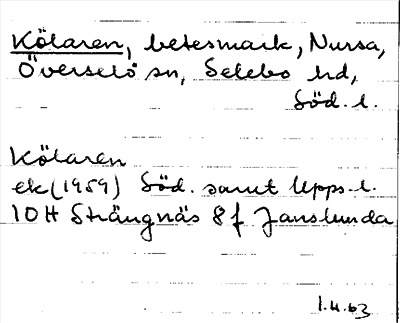 Kölaren, betesmark, Nursa,
Överselö sn, Selebo hd,
Söd. l.
Kölaren
ek (1959) Söd. samt Upps. l.
10H Strängnäs 8f Janslunda
1.4.63